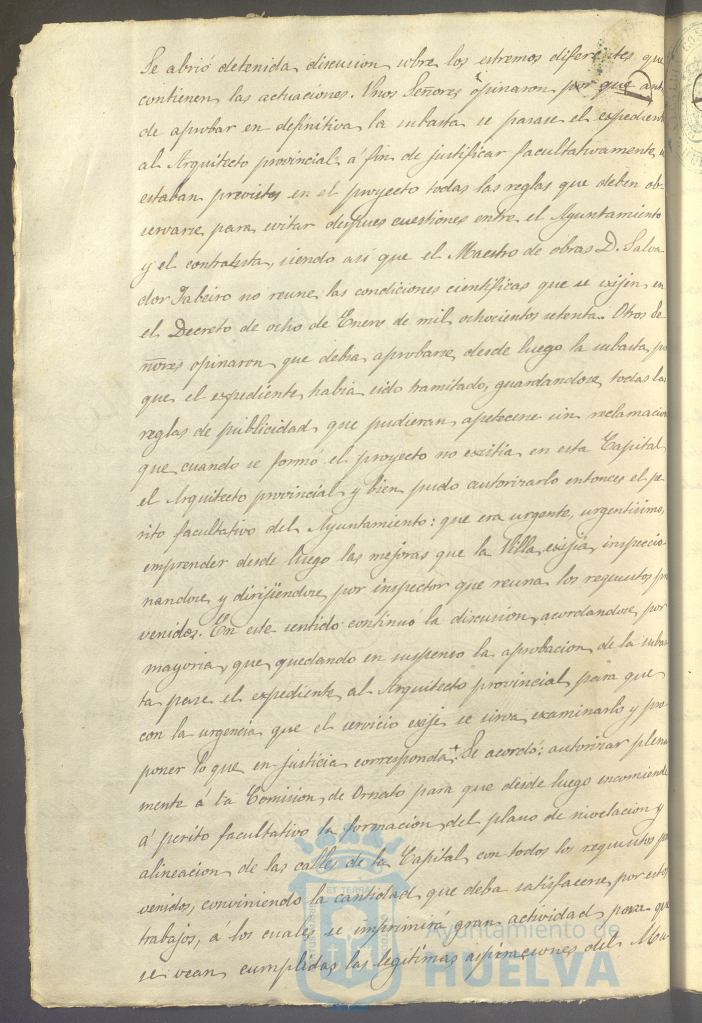 Se abrió detenida discusion sobre los estremos diferentes que
contienen las actuaciones. Unos Señores opinaron por que ant
de aprobar en definitiva la subasta se pasase el expedient
al Arquitecto provincial á fin de justificar facultativamente, si
estaban previstas en el proyecto todas las reglas que deben ob-
servarse para evitar despues cuestiones entre el Ayuntamiento
y el contratista, siendo asi que el Maestro de obras D. Salva
dor Tabeiro no reune las condiciones cientificas que se exijen en
el Decreto de ocho de Enero de mil ochocientos setenta. Otros Se
ñores opinaron que debia aprobarse desde luego la subasta, po
que el expediente habia sido tramitado, guardandose todas las
reglas de publicidad que pudieran apetecerse sin reclamacion
que cuando se formó el proyecto no existia en esta Capital
el Arquitecto provincial y bien pudo autorizarlo entonces el pe
rito facultativo del Ayuntamiento: que era urgente, urgentisimo,
emprender desde luego las mejoras que la Villa exijia, inspeccio-
nandose y dirijiendose por inspector que reuna los requisitos pre
venidos. En este sentido continuó la discusion, acordandose por
mayoria, que quedando en suspenso la aprobacion de la subas
ta pase el expediente al Arquitecto provincial para que
con la urgencia que el servicio exije se sirva examinarlo y pro
poner lo que en justicia corresponda. Se acordó: autorizar plena
mente á la Comision de Ornato para que desde luego encomiende
á perito facultativo la formacion del plano de nivelacion y
alineacion de las calles de la Capital con todos los requisitos pre
venidos, conviniendo la cantidad que deba satisfacerse por estos
trabajos, á los cuales se imprimira gran actividad para que
se vean cumplidas las legitimas aspiraciones del Mu-
Ayuntamiento de
HUELVA